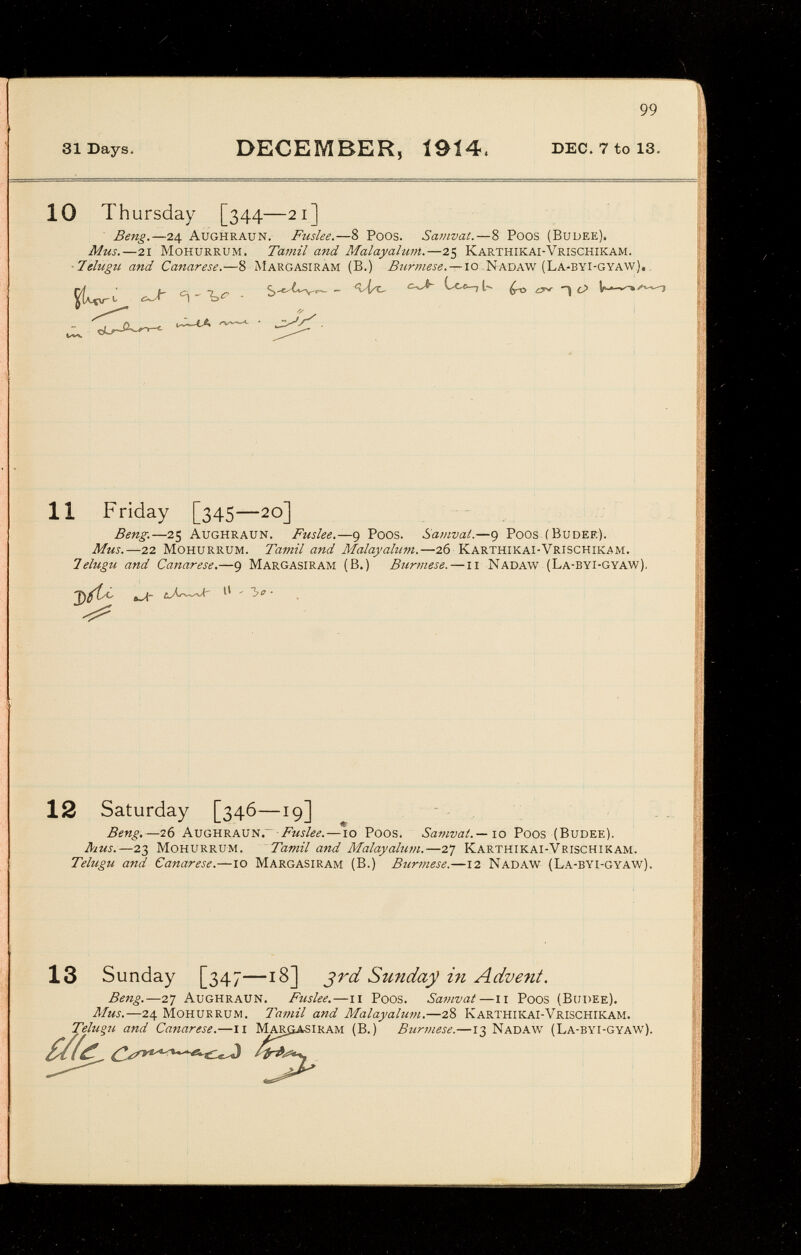 99
31 Days. DECEMBER, 1914. DEC. 7 to 13.
10 Thursday [344—21]
Beng.—24 AUGHRAUN. Fuslee.—8 POOS. Samvat.—8 POOS (BUDEE).
Mus.—21 MOHURRUM. Tamil and Malayalum.—25 KARTHIKAI-VRISCHIKAM.
Telugu and Canarese.—8 MARGASIRAM (B.) Burmese.—10 NADAW (LA-BYI-GYAW).
11 Friday [345—20]
Beng.—25 AUGHRAUN. Fuslee.—9 POOS. Samvat.—9 POOS (BUDEE).
Mus.—22 MOHURRUM. Tamil and Malayalum.—26 KARTHIKAI-VRISCHIKAM.
Telugu and Canarese.—9 MARGASIRAM (B.) Burmese.—11 NADAW (LA-BYI-GYAW).
12 Saturday [346—19]
Beng.—26 AUGHRAUN. Fuslee.—10 POOS. Samvat.—10 POOS (BUDEE).
Mus.—23 MOHURRUM. Tamil and Malayalum.—27 KARTHIKAI-VRISCHIKAM.
Telugu and Canarese.—10 MARGASIRAM (B.) Burmese.—12 NADAW (LA-BYI-GYAW).
13 Sunday [347—18] 3rd Sunday in Advent.
Beng.—27 AUGHRAUN. Fuslee.—11 POOS. Samvat—11 POOS (BUDEE).
Mus.—24 MOHURRUM. Tamil and Malayalum.—28 KARTHIKAI-VRISCHIKAM.
Telugu and Canarese.—11 MARGASIRAM (B.) Burmese.—13 NADAW (LA-BYI-GYAW).